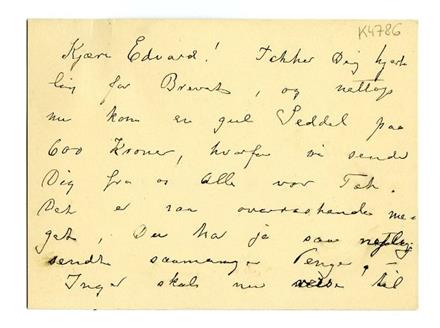 K4786
Kjære Edvard! Takker Dig hjerte
lig for Brevet, og nettop
nu kom en gul Seddel paa
600 Kroner, hvorfor vi sender
Dig fra os Alle vor Tak.
Det er saa overraskende me-
get, Du har ja saa nylig
sendt saamange Penge,
Inger skal nu reise til